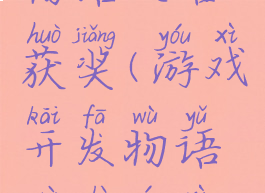 huò jiǎng yóu xì
获奖(游戏
kāi fā wù yǔ
开发物语